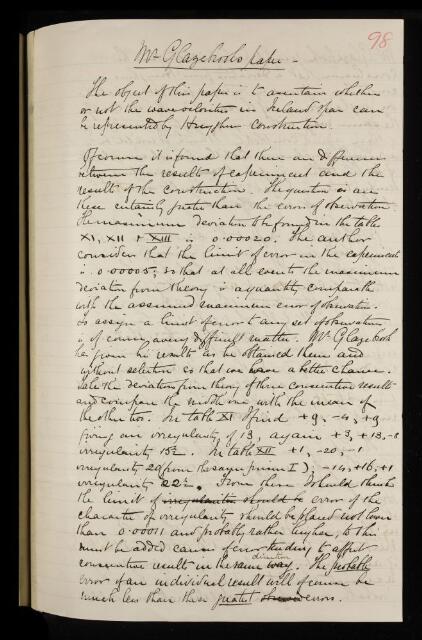 98
Mr Glazebrook's paper -
The object of this paper is to ascertain whether
or not the wave velocities in Iceland Spar can
be represented by Huyghens construction.
Of course it is found that there are differences
between the results of experiment and the
result of the construction. The question is are
these certainly greater than the errors of observation
The maximum deviation to be found in the tables
XI, XII & XIII is 0.00020. The author
considers that the limit of error in the experiments
is 0.00005; so that at all events the maximum
deviation from theory is a quantity comparable
with the assumed maximum error of observation.
To assign a limit of error to any set of observations
is of course a very difficult matter. Mr Glazebrook
has given his results as he obtained them and
without selection so that we have a better chance.
Take the deviations from theory of three consecutive results
and compare the middle one with the mean of
the other two. In table XI I find +9, -4, +9
giving an irregularity of 13, again +3, +13, -8
irregularity 15½. In table XII +1, -20, -1
irregularity 20 (from the same prism I); -14, +16, +1
irregularity 22½. From these I should think
the limit of irregularities should be error of the
character of irregularity should be placed not lower
than 0.00011 and probably rather higher, to this
must be added causes of error tending to affect
consecutive results in the same way. direction The probable
error of an individual result will of course be
much less than these greatest errors.